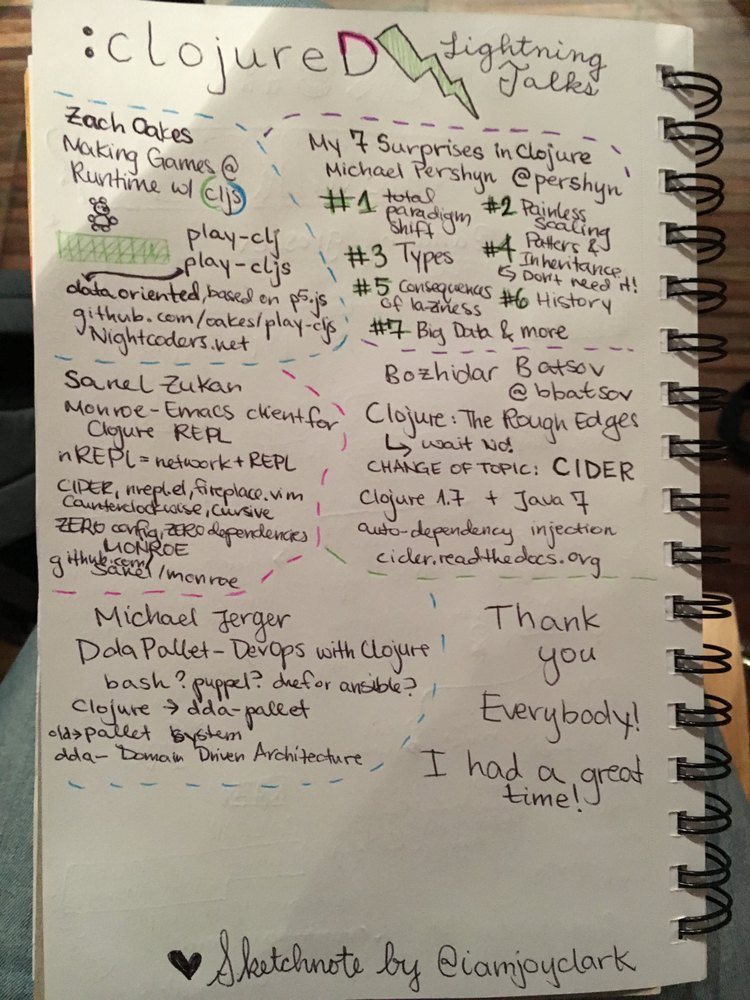 :clojureD
Lightning
Talks
Zach Oakes
Making Games @
Runtime w/ cljs
play-clj
play-cljs
data oriented, based on p5.js
github.com/oakes/play-cljs
Nightcoders.net
My 7 Surprises in Clojure
Michael Pershyn @pershyn
#1 total
paradigm
shift
#2 Painless
Scaling
#3 Types
#4 Patters &
Inheritance
↳ Don't need it!
#5 Consequences
of laziness
#6 History
#7 Big Data & more
Sanel Zukan
Monroe - Emacs client for
Clojure REPL
nREPL = network + REPL
CIDER, nrepl.el, fireplace.vim
Counterclockwise, Cursive
ZERO config, ZERO dependencies
MONROE
github.com/
sanel/monroe
Bozhidar Batsov
@bbatsov
Clojure: The Rough Edges
↳ wait No!
CHANGE OF TOPIC: CIDER
Clojure 1.7 + Java 7
auto-dependency injection
cider.readthedocs.org
Michael Jerger
Dda Pallet - DevOps with Clojure
bash? puppet? chef or ansible?
Clojure → dda-pallet
old→ pallet system
dda - Domain Driven Architecture
Thank
you
Everybody!
I had a great
time!
♥ Sketchnote by @iamjoyclark